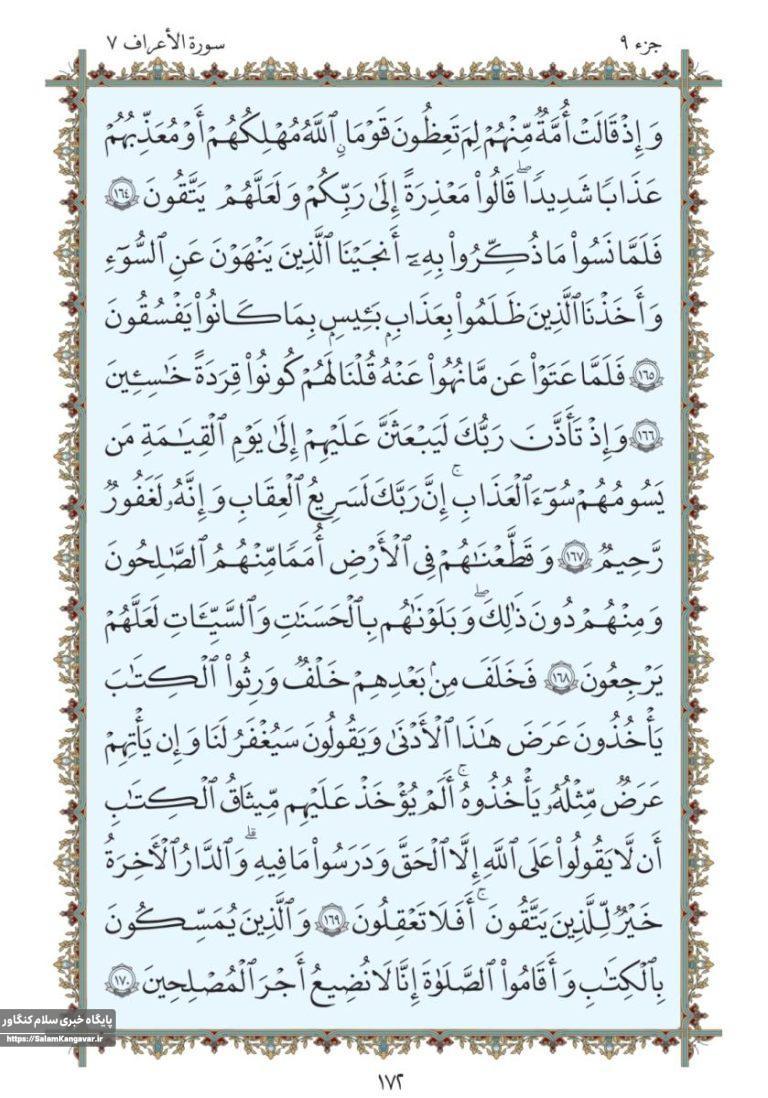 جزء ٩
سورة الأعراف ٧
وَإِذْ قَالَتْ أُمَّةٌ مِّنْهُمْ لِمَ تَعِظُونَ قَوْمًا ۙ ٱللَّهُ مُهْلِكُهُمْ أَوْ مُعَذِّبُهُمْ
عَذَابًا شَدِيدًا ۖ قَالُوا۟ مَعْذِرَةً إِلَىٰ رَبِّكُمْ وَلَعَلَّهُمْ يَتَّقُونَ ١٦٤
فَلَمَّا نَسُوا۟ مَا ذُكِّرُوا۟ بِهِۦٓ أَنجَيْنَا ٱلَّذِينَ يَنْهَوْنَ عَنِ ٱلسُّوٓءِ
وَأَخَذْنَا ٱلَّذِينَ ظَلَمُوا۟ بِعَذَابٍۭ بَـِٔيسٍۭ بِمَا كَانُوا۟ يَفْسُقُونَ
١٦٥ فَلَمَّا عَتَوْا۟ عَن مَّا نُهُوا۟ عَنْهُ قُلْنَا لَهُمْ كُونُوا۟ قِرَدَةً خَـٰسِـِٔينَ
١٦٦ وَإِذْ تَأَذَّنَ رَبُّكَ لَيَبْعَثَنَّ عَلَيْهِمْ إِلَىٰ يَوْمِ ٱلْقِيَـٰمَةِ مَن
يَسُومُهُمْ سُوٓءَ ٱلْعَذَابِ ۗ إِنَّ رَبَّكَ لَسَرِيعُ ٱلْعِقَابِ ۖ وَإِنَّهُۥ لَغَفُورٌ
رَّحِيمٌ ١٦٧ وَقَطَّعْنَـٰهُمْ فِى ٱلْأَرْضِ أُمَمًا ۖ مِّنْهُمُ ٱلصَّـٰلِحُونَ
وَمِنْهُمْ دُونَ ذَٰلِكَ ۖ وَبَلَوْنَـٰهُم بِٱلْحَسَنَـٰتِ وَٱلسَّيِّـَٔاتِ لَعَلَّهُمْ
يَرْجِعُونَ ١٦٨ فَخَلَفَ مِنۢ بَعْدِهِمْ خَلْفٌ وَرِثُوا۟ ٱلْكِتَـٰبَ
يَأْخُذُونَ عَرَضَ هَـٰذَا ٱلْأَدْنَىٰ وَيَقُولُونَ سَيُغْفَرُ لَنَا وَإِن يَأْتِهِمْ
عَرَضٌ مِّثْلُهُۥ يَأْخُذُوهُ ۚ أَلَمْ يُؤْخَذْ عَلَيْهِم مِّيثَـٰقُ ٱلْكِتَـٰبِ
أَن لَّا يَقُولُوا۟ عَلَى ٱللَّهِ إِلَّا ٱلْحَقَّ وَدَرَسُوا۟ مَا فِيهِ ۗ وَٱلدَّارُ ٱلْـَٔاخِرَةُ
خَيْرٌ لِّلَّذِينَ يَتَّقُونَ ۗ أَفَلَا تَعْقِلُونَ ١٦٩ وَٱلَّذِينَ يُمَسِّكُونَ
بِٱلْكِتَـٰبِ وَأَقَامُوا۟ ٱلصَّلَوٰةَ إِنَّا لَا نُضِيعُ أَجْرَ ٱلْمُصْلِحِينَ ١٧٠
پایگاه خبری سلام کنگاور
https://SalamKangavar.ir
١٧٢